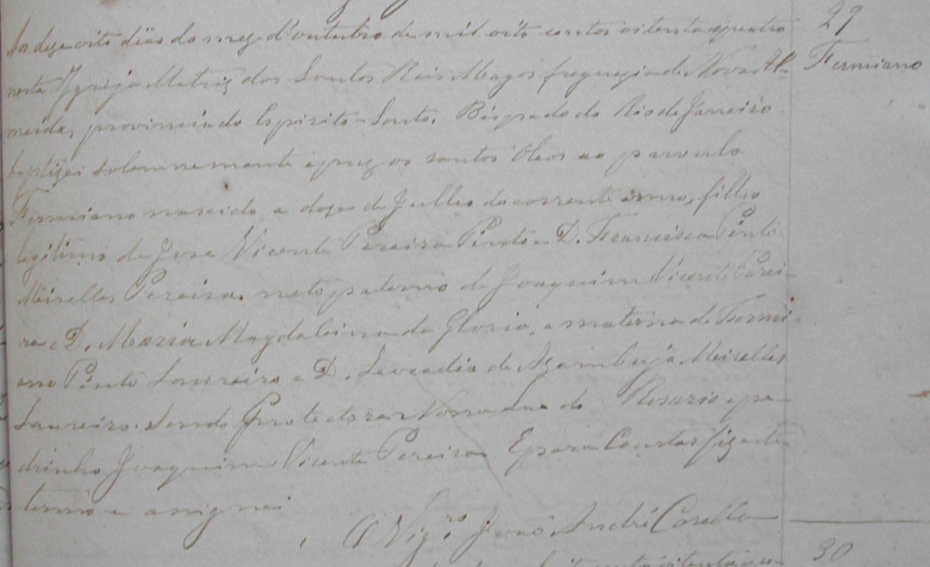 29
Fermiano
Aos dezeoito dias do mez d'outubro de mil oito centos oitenta e quatro
nesta Igreja Matriz dos Santos Reis Magos freguezia de Nova Al-
meida, provincia do Espirito-Santo. Bispado do Rio de Janeiro
baptizei solemnemente e puz os santos Oleos ao parvulo
Fermiano nascido a doze de Julho do corrente anno, filho
legitimo de Jose Vicente Pereira Pinto e D. Francisca Pinto
Meirelles Pereira. neto paterno de Joaquim Vicente Perei-
ra e D. Maria Magdaleina da Gloria, e materno de Fermi-
ano Pinto Loureiro e D. Leocadia de Azambuja Meirelles
Loureiro. Sendo Protectora Nossa Snra do Rosario e pa-
drinho Joaquim Vicente Pereira E para Constar fiz este
termo e assignei
O Vigro João André Casella
30